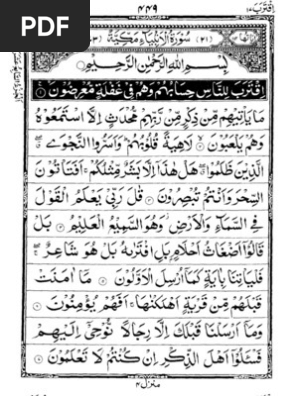 PDF
اقترب ١٧
٤٤٩
(٢١) سُوْرَةُ الْاَنْبِيَآءِ مَكِّيَّةٌ
بِسْمِ اللهِ الرَّحْمٰنِ الرَّحِيْمِ
اِقْتَرَبَ لِلنَّاسِ حِسَابُهُمْ وَهُمْ فِيْ غَفْلَةٍ مُّعْرِضُوْنَ
مَا يَاْتِيْهِمْ مِّنْ ذِكْرٍ مِّنْ رَّبِّهِمْ مُّحْدَثٍ اِلَّا اسْتَمَعُوْهُ
وَهُمْ يَلْعَبُوْنَ لَاهِيَةً قُلُوْبُهُمْ وَاَسَرُّوا النَّجْوَى
الَّذِيْنَ ظَلَمُوْا هَلْ هٰذَا اِلَّا بَشَرٌ مِّثْلُكُمْ اَفَتَاْتُوْنَ
السِّحْرَ وَاَنْتُمْ تُبْصِرُوْنَ قٰلَ رَبِّيْ يَعْلَمُ الْقَوْلَ
فِي السَّمَآءِ وَالْاَرْضِ وَهُوَ السَّمِيْعُ الْعَلِيْمُ بَلْ
قَالُوْٓا اَضْغَاثُ اَحْلَامٍ بَلِ افْتَرٰىهُ بَلْ هُوَ شَاعِرٌ
فَلْيَاْتِنَا بِاٰيَةٍ كَمَآ اُرْسِلَ الْاَوَّلُوْنَ مَآ اٰمَنَتْ
قَبْلَهُمْ مِّنْ قَرْيَةٍ اَهْلَكْنٰهَا اَفَهُمْ يُؤْمِنُوْنَ
وَمَآ اَرْسَلْنَا قَبْلَكَ اِلَّا رِجَالًا نُّوْحِيْٓ اِلَيْهِمْ
فَسْـَٔلُوْٓا اَهْلَ الذِّكْرِ اِنْ كُنْتُمْ لَا تَعْلَمُوْنَ
منزل ٤